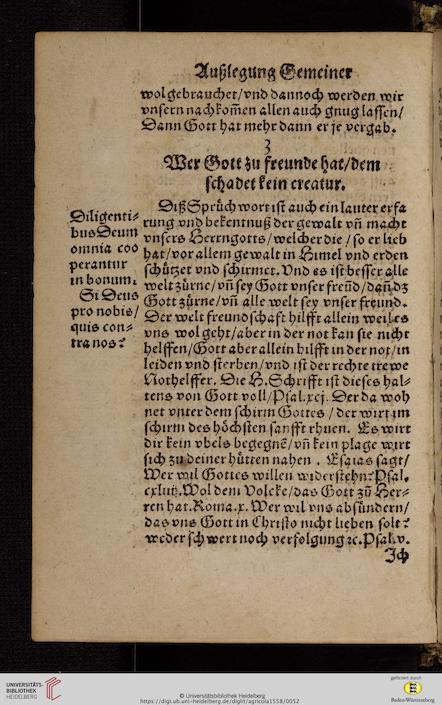 Außlegung Gemeiner
wol gebrauchet/vnd dannoch werden wir
vnsern nachkom̃en allen auch gnug lassen/
Dann Gott hat mehr dann er je vergab.
3
Wer Gott zu freunde hat/dem
schadet kein creatur.
Diß Sprüchwort ist auch ein lauter erfa
rung vnd bekentnuß der gewalt vñ macht
vnsers Herrngotts/welcher die/so er lieb
hat/vor allem gewalt in Himel vnd erden
schützet vnd schirmet. Vnd es ist besser alle
welt zürne/vñ sey Gott vnser freũd/dañ dz
Gott zürne/vñ alle welt sey vnser freund.
Der welt freundschafft hilfft allein weil es
vns wol geht/aber in der not kan sie nicht
helffen/Gott aber allein hilfft in der not/in
leiden vnd sterben/vnd ist der rechte trewe
Nothelffer. Die H. Schrifft ist dieses hal-
tens von Gott voll/Psal.xcj. Der da woh
net vnter dem schirm Gottes/der wirt im
schirm des höchsten sanfft rhuen. Es wirt
dir kein vbels begegnẽ/vñ kein plage wirt
sich zu deiner hütten nahen. Esaias sagt/
Wer wil Gottes willen widerstehn? Psal.
Wol dem Volcke/das Gott zũ Her-
ren hat. Roma.x. Wer wil vns absündern/
das vns Gott in Christo nicht lieben solt?
weder schwert noch verfolgung ꝛc. Psal.v.
Ich
Diligenti-
bus Deum
omnia coo
perantur
in bonum.
Si Deus
pro nobis/
quis con-
tra nos?
UNIVERSITÄTS-
BIBLIOTHEK
HEIDELBERG
© Universitätsbibliothek Heidelberg
https://digi.ub.uni-heidelberg.de/diglit/agricola1558/0052
gefördert durch
Baden-Württemberg